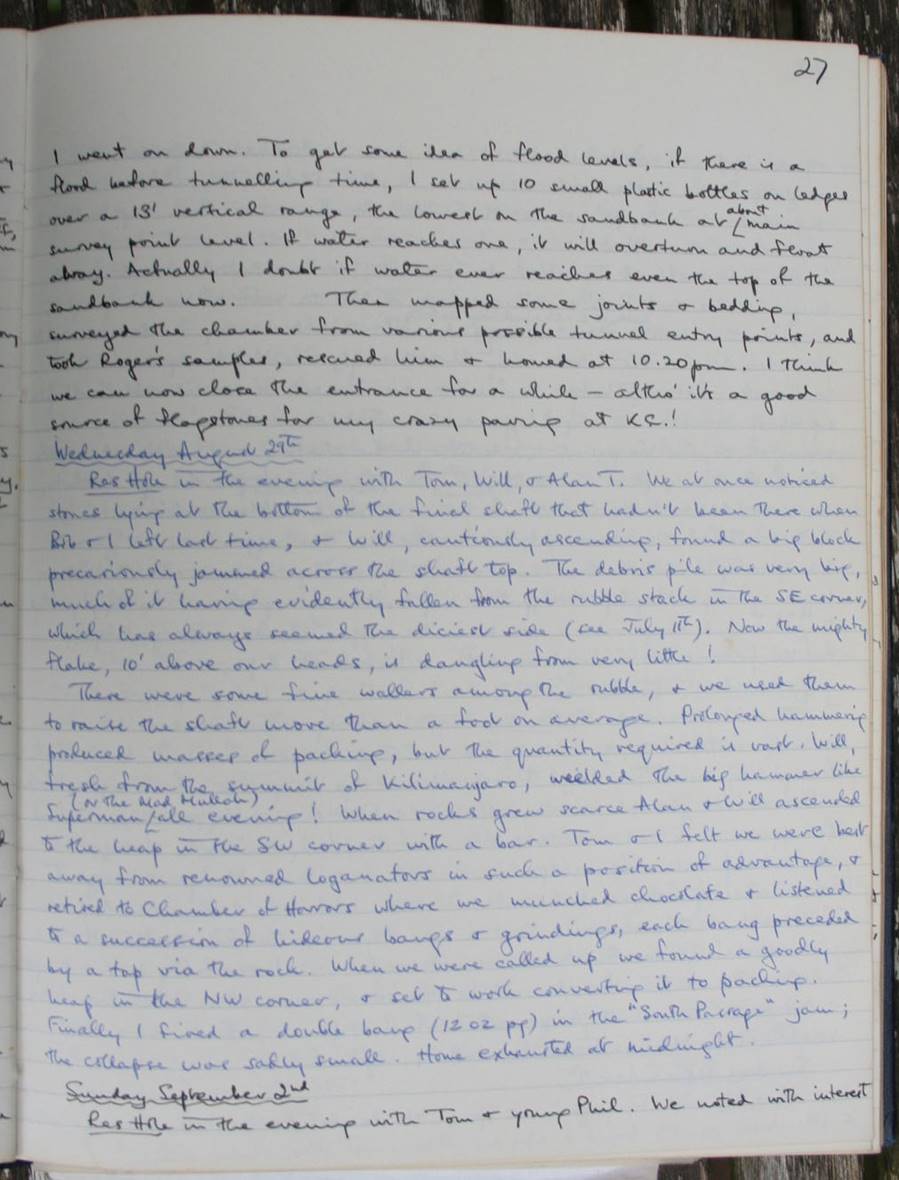 27
I went on down. To get some idea of flood levels, if there is a
flood before tunnelling time, I set up 10 small plastic bottles on ledges
over a 13' vertical range, the lowest on the sandbank at about main
survey point level. If water reaches one, it will overturn and float
away. Actually I doubt if water ever reaches even the top of the
sandbank now. Then mapped some joints & bedding,
surveyed the chamber from various possible tunnel entry points, and
took Roger's samples, rescued him & homed at 10.20pm. I think
we can now close the entrance for a while – altho' it's a good
source of flagstones for my crazy paving at KC.!
Wednesday August 29th
Res Hole in the evening with Tom, Will, & Alan T. We at once noticed
stones lying at the bottom of the final shaft that hadn't been there when
Bib & I left last time, & Will, cautiously ascending, found a big block
precariously jammed across the shaft top. The debris pile was very big,
much of it having evidently fallen from the rubble stack in the SE corner,
which has always seemed the diciest side (see July 11th). Now the mighty
flake, 10' above our heads, is dangling from very little!
There were some fine wallers among the rubble, & we used them
to raise the shaft more than a foot on average. Prolonged hammering
produced masses of packing, but the quantity required is vast. Will,
fresh from the summit of Kilimanjaro, wielded the big hammer like
Superman (or the Mad Mullah) all evening! When rocks grew scarce Alan & Will ascended
to the heap in the SW corner with a bar. Tom & I felt we were best
away from renowned loganators in such a position of advantage, &
retired to Chamber of Horrors where we munched chocolate & listened
to a succession of hideous bangs & grindings, each bang preceded
by a tap via the rock. When we were called up we found a goodly
heap in the NW corner, & set to work converting it to packing.
Finally I fired a double bang (12 oz pg) in the "South Passage" jam;
the collapse was sadly small. Home exhausted at midnight.
Sunday September 2nd
Res Hole in the evening with Tom & young Phil. We noted with interest